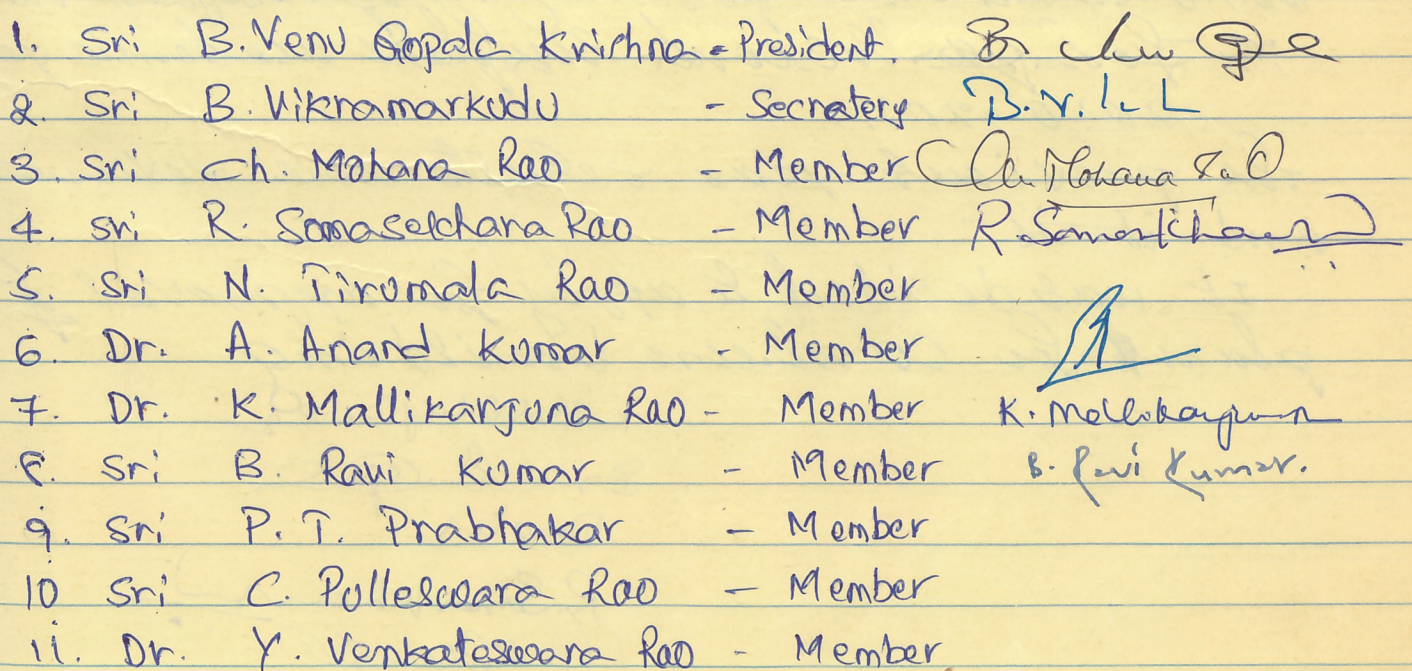 1. Sri B. Venu Gopala Krishna - President.
2. Sri B. Vikramarkudu - Secretery
3. Sri Ch. Mohana Rao - Member Ch. Mohana Rao
4. Sri R. Somasekhara Rao - Member
5. Sri N. Tirumala Rao - Member
6. Dr. A. Anand Kumar - Member
7. Dr. K. Mallikarjuna Rao - Member K. Mallikarjuna
8. Sri B. Ravi Kumar - Member B. Ravi Kumar.
9. Sri P. T. Prabhakar - Member
10 Sri C. Pulleswara Rao - Member
11. Dr. Y. Venkateswara Rao - Member